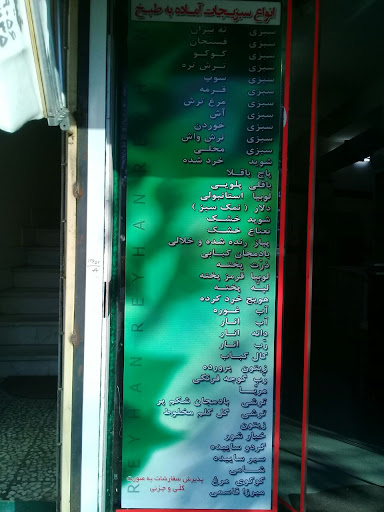 انواع سبزیجات آماده به طبخ
سبزی ته سران
سبزی فسنجان
سبزی کوکو
سبزی ترش تره
سبزی سوپ
سبزی قرمه
سبزی مرغ ترش
سبزی آش
سبزی خوردن
سبزی ترش واش
سبزی محلی
شوید خرد شده
پاچ باقلا
باقلی پلویی
لوبیا استانبولی
دلار ( نمک سبز )
شوید خشک
نعناع خشک
پیاز رنده شده و خلالی
بادمجان کبابی
ذرت پخته
لوبیا قرمز پخته
لپه پخته
هویج خرد کرده
آب غوره
آب انار
دانه انار
رب انار
کال کباب
زیتون پرورده
رب گوجه فرنگی
مربا
ترشی بادمجان شکم پر
ترشی گل کلم مخلوط
زیتون
خیار شور
کدو ساییده
سیر ساییده
شامی
کوکوی مرغ
میرزا قاسمی
پذیرش سفارشات به صورت
کلی و جزئی
REYHAN REYHAN RE